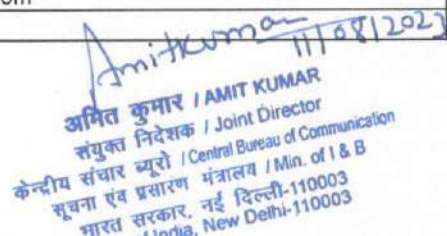 om
Amitkumar
11/08/2023
अमित कुमार / AMIT KUMAR
संयुक्त निदेशक / Joint Director
केन्द्रीय संचार ब्यूरो / Central Bureau of Communication
सूचना एवं प्रसारण मंत्रालय / Min. of I & B
भारत सरकार, नई दिल्ली-110003
of India, New Delhi-110003